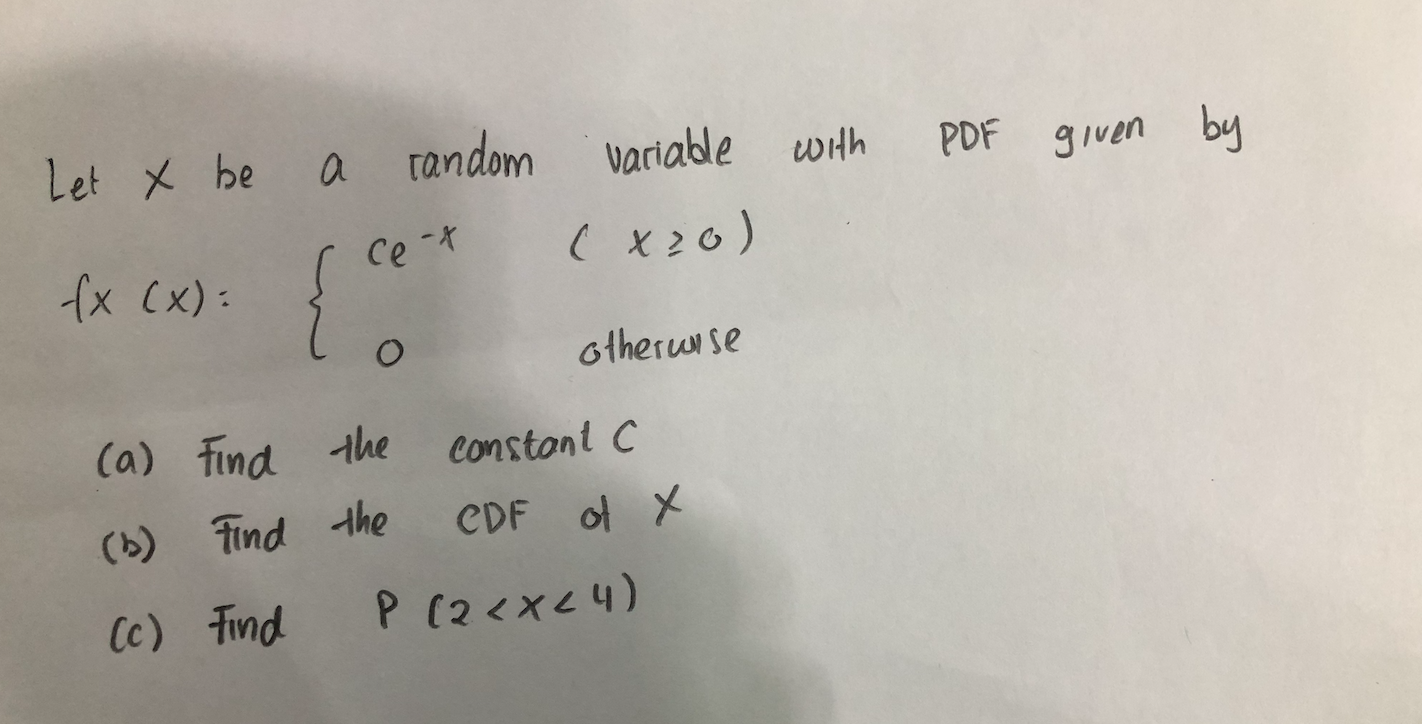 Let X be a random variable with PDF given by
fx (x) = { ce^-x ( x ≥ 0 )
0 otherwise
(a) Find the constant C
(b) Find the CDF of X
(c) Find P (2 < x < 4)